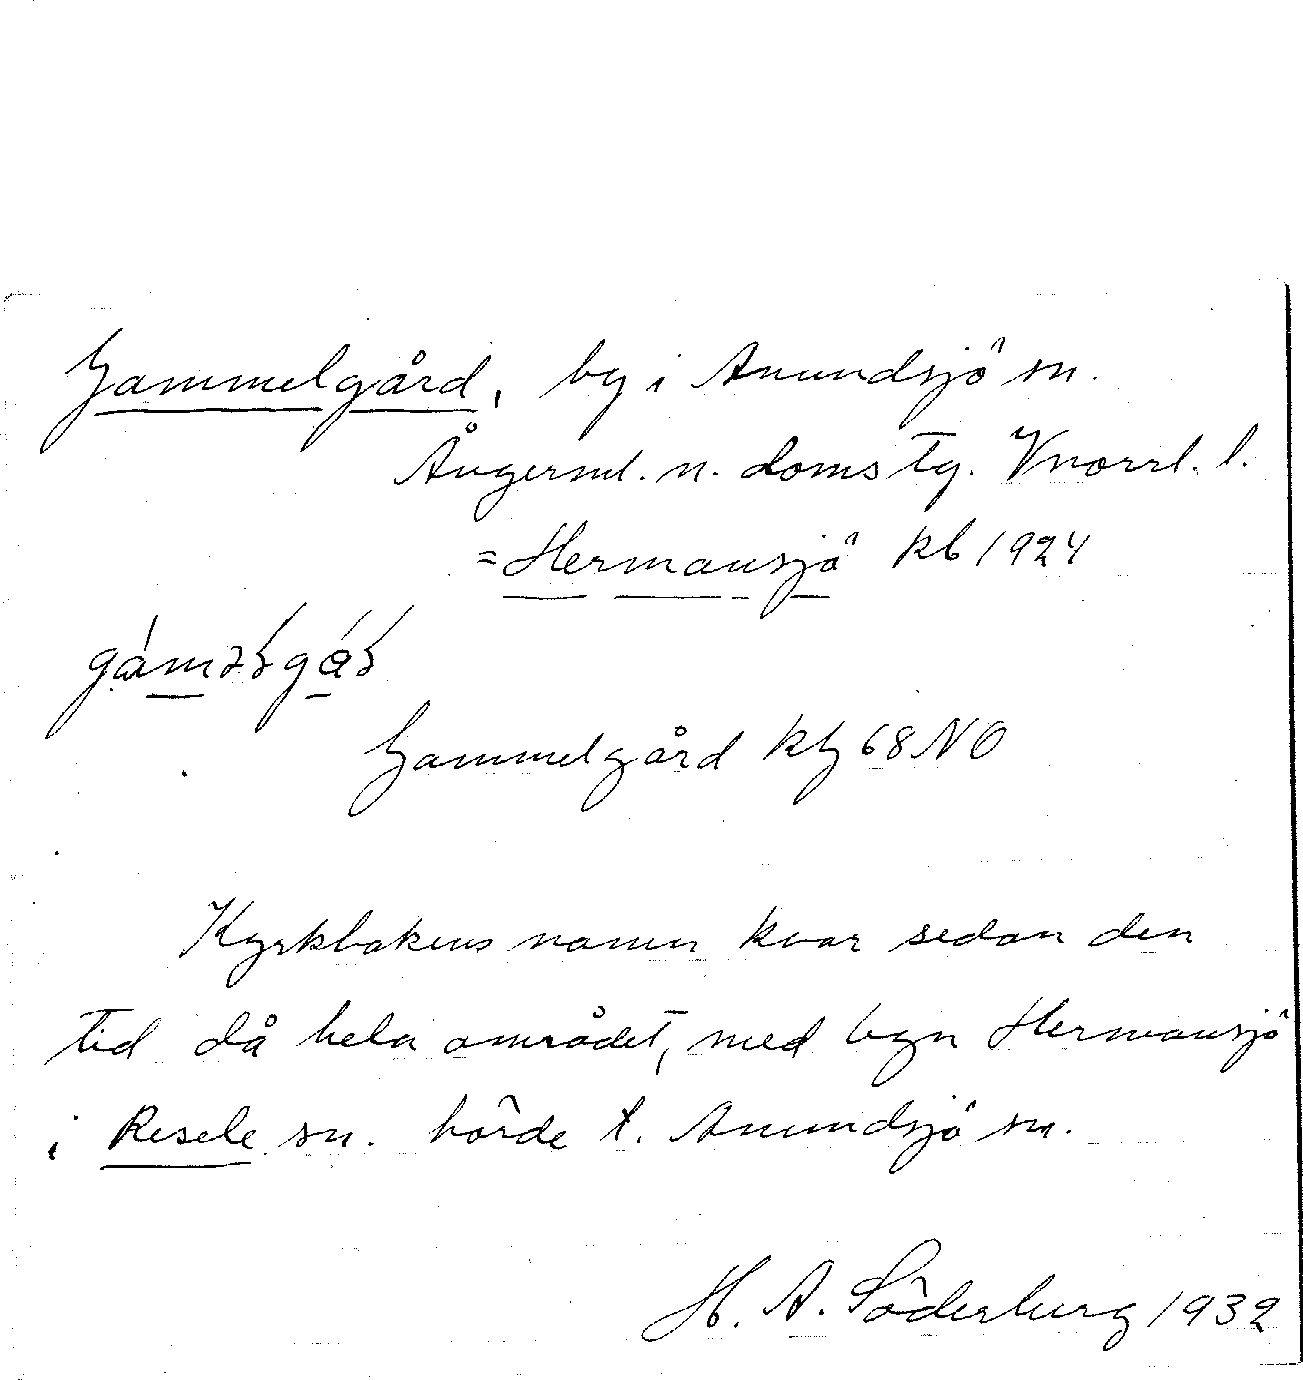 Gammelgård, by i Anundsjö sn.
Ångerml. n. doms tg. Vnorrl. l.
= Hermansjö kb 1924
Gammelgård kbl 68 NO
Kyrkbokens namn kvar sedan den
tid då hela området, med byn Hermansjö
i Resele sn. hörde t. Anundsjö sn.
H. A. Söderberg 1932